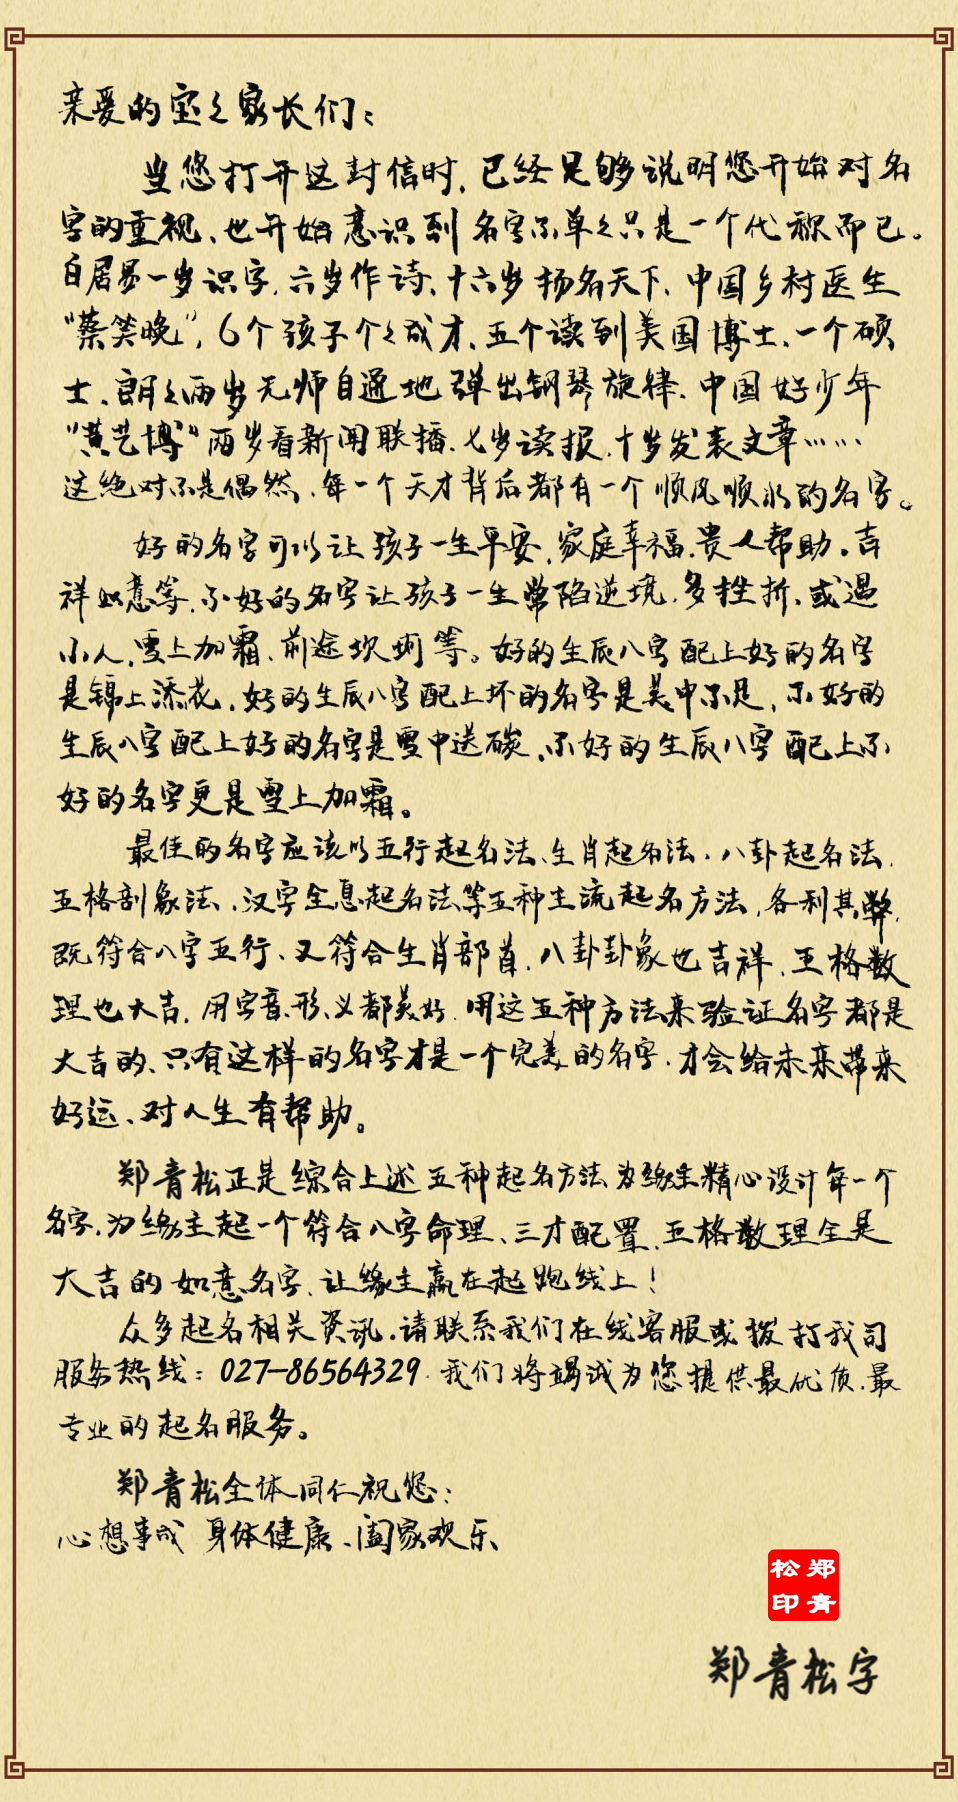 亲爱的宝々家长们：
当您打开这封信时，已经足够说明您开始对名
字的重视、也开始意识到名字不单々只是一个代称而已。
白居易一岁识字，六岁作诗、十六岁扬名天下、中国乡村医生
“蔡笑晚”，6个孩子个々成才、五个读到美国博士、一个硕
士、朗朗两岁无师自通地弹出钢琴旋律、中国好少年
“黄艺博”两岁看新闻联播、七岁读报、十岁发表文章……
这绝对不是偶然、每一个天才背后都有一个顺风顺水的名字。
好的名字可以让孩子一生平安、家庭幸福、贵人帮助。吉
祥如意等、不好的名字让孩子一生常陷逆境、多挫折、或遇
小人、雪上加霜、前途坎坷等。好的生辰八字配上好的名字
是锦上添花，好的生辰八字配上坏的名字是美中不足，不好的
生辰八字配上好的名字是雪中送碳、不好的生辰八字配上不
好的名字更是雪上加霜。
最佳的名字应该以五行起名法、生肖起名法、八卦起名法、
五格剖象法、汉字全息起名法等五种主流起名方法，各利其弊，
既符合八字五行、又符合生肖部首、八卦卦象也吉祥、五格数
理也大吉，用字音、形、义都美好，用这五种方法来验证名字都是
大吉的、只有这样的名字才是一个完美的名字，才会给未来带来
好运、对人生有帮助。
郑青松正是综合上述五种起名方法为缘主精心设计每一个
名字，为缘主起一个符合八字命理、三才配置、五格数理全是
大吉的如意名字、让缘主赢在起跑线上！
众多起名相关资讯，请联系我们在线客服或拨打我司
服务热线：027-86564329 我们将竭诚为您提供最优质、最
专业的起名服务。
郑青松全体同仁祝您：
心想事成 身体健康、阖家欢乐
松郑
印青
郑青松字